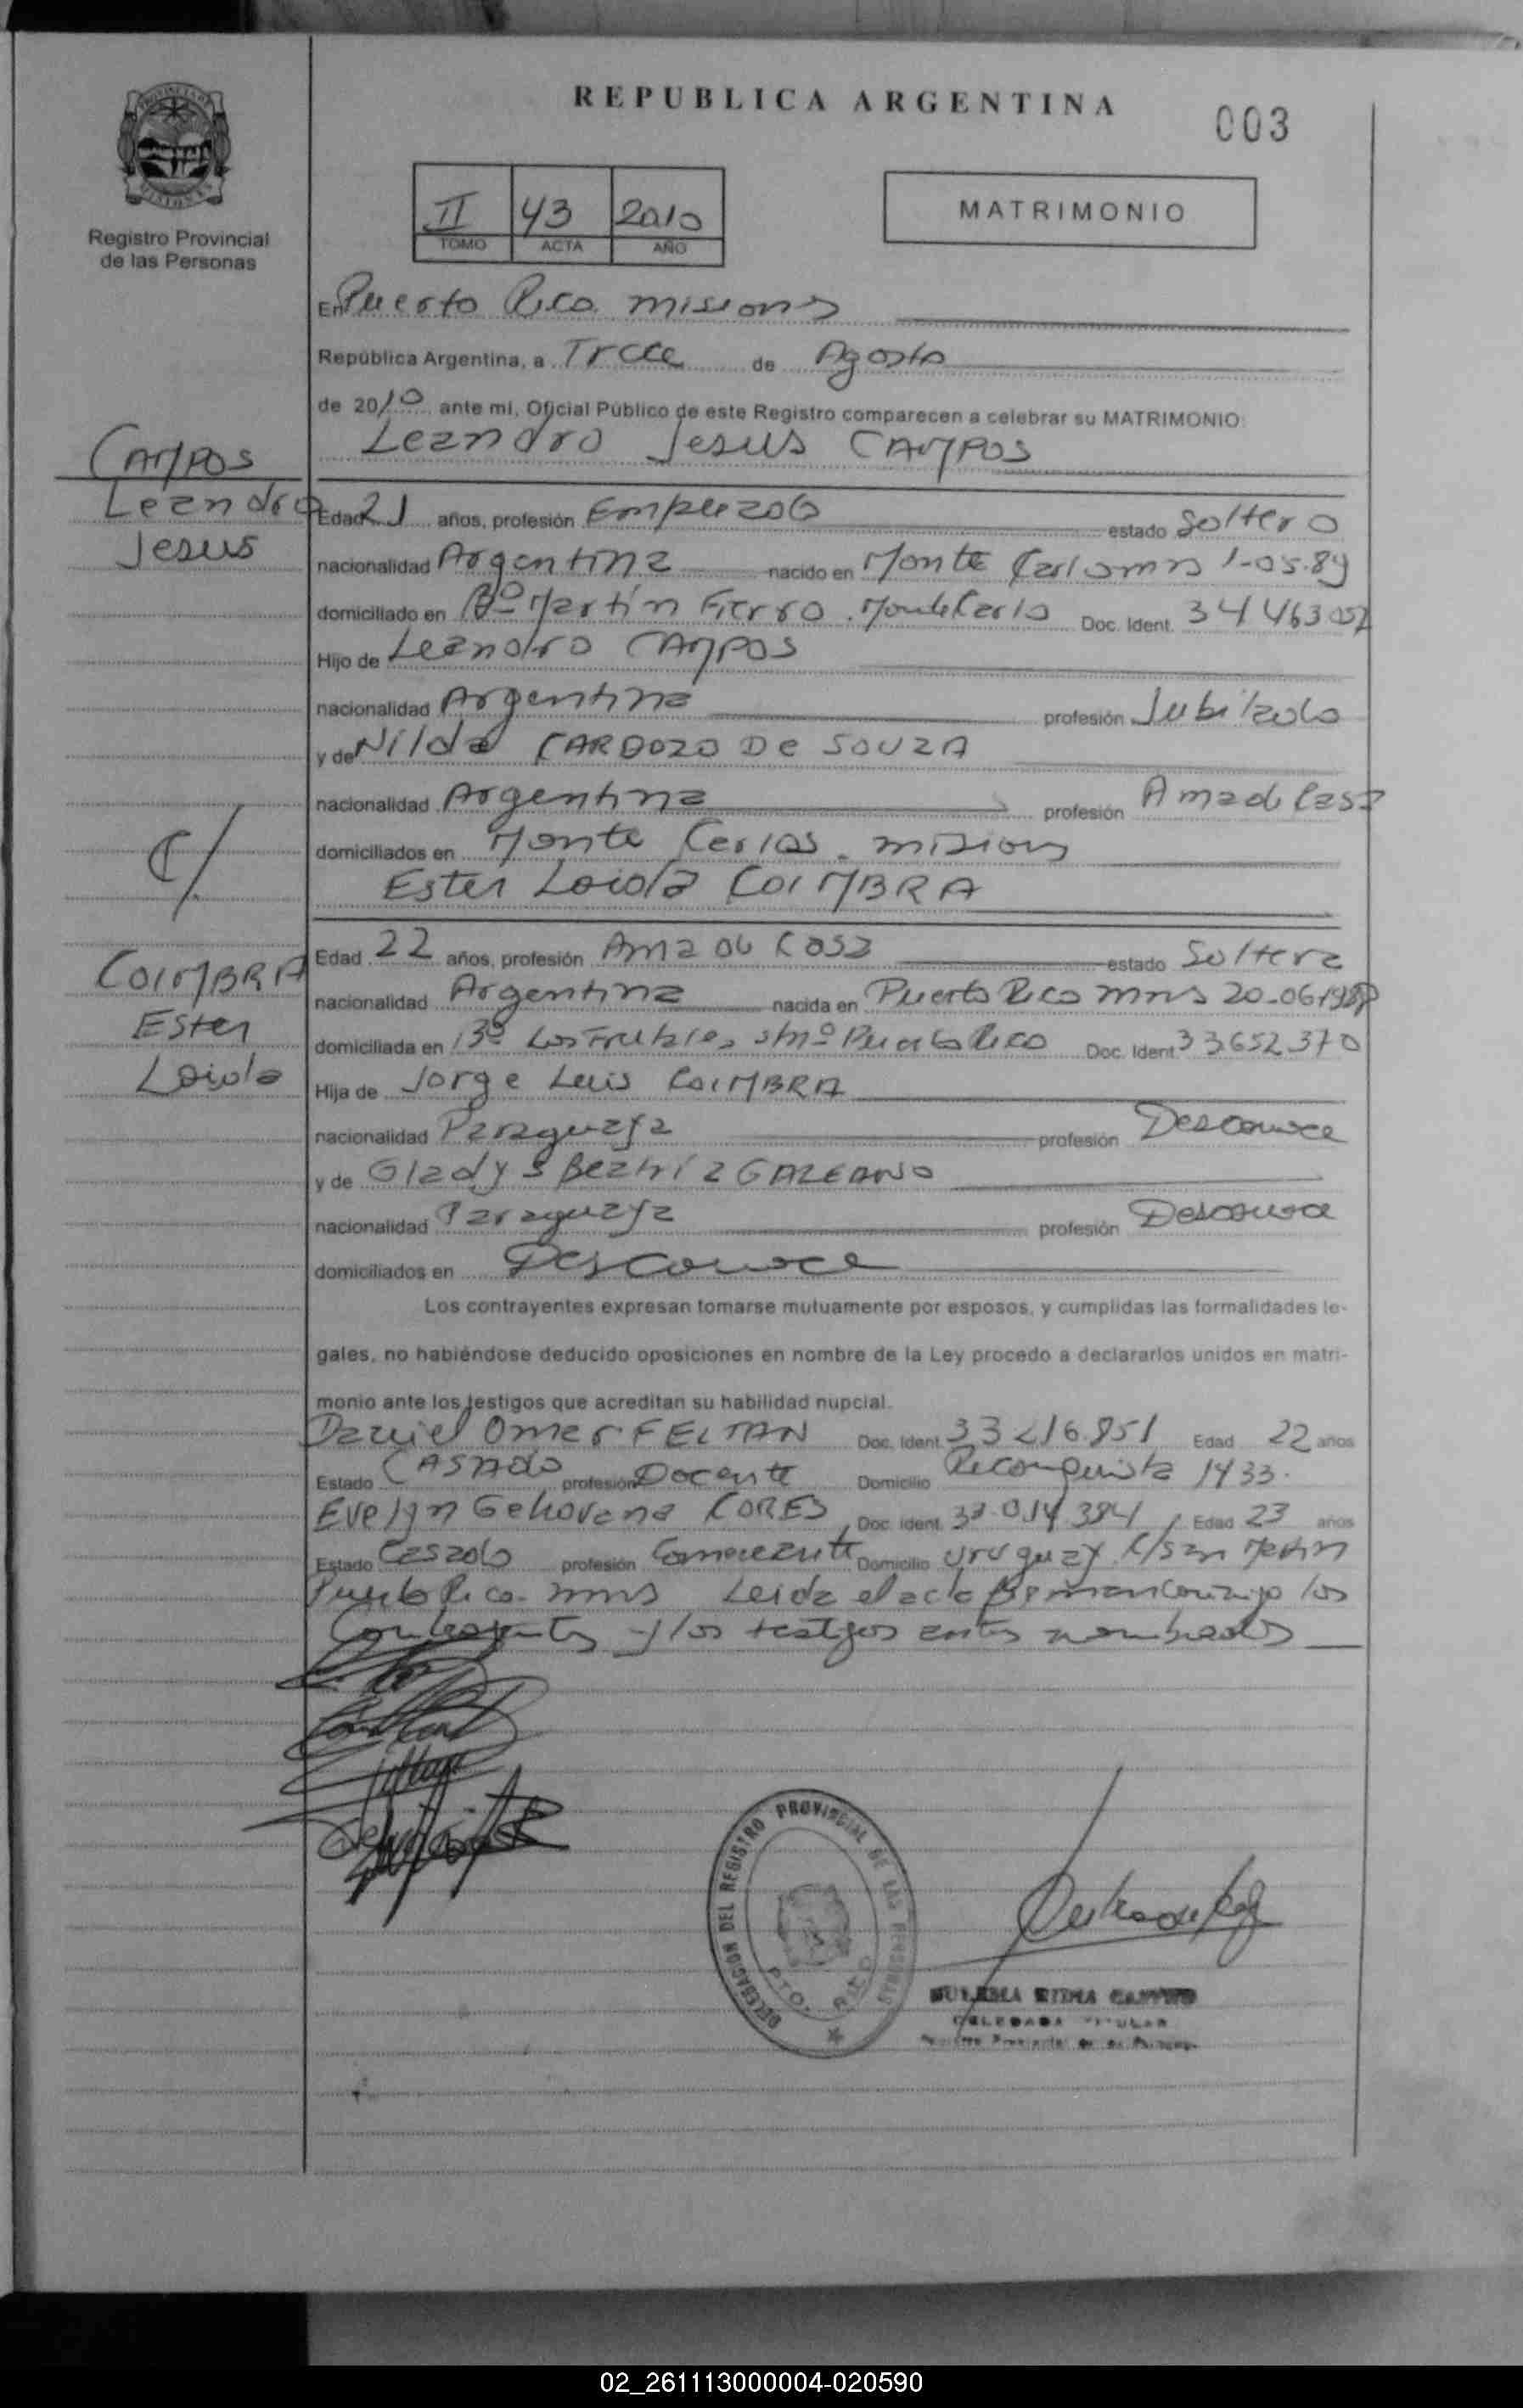 REPUBLICA ARGENTINA
003
II 43 2010
TOMO ACTA AÑO
MATRIMONIO
Registro Provincial
de las Personas
En Puerto Rico misions
República Argentina, a Trece de Agosto
de 2010 ante mi, Oficial Público de este Registro comparecen a celebrar su MATRIMONIO:
Leandro Jesus CAMPOS
CAMPOS
Leandro
Jesus
Edad 21 años, profesión Empleado estado Soltero
nacionalidad Argentina nacido en Monte Carlo mns 1-05-89
domiciliado en Bº Martín Fierro. Montecarlo Doc. Ident. 34463057
Hijo de Leandro CAMPOS
nacionalidad Argentina profesión Jubilado
y de Nilda CARDOZO De SOUZA
nacionalidad Argentina profesión Ama de Casa
domiciliados en Monte Carlos. mision
C/.
Ester Loiola COIMBRA
COIMBRA
Ester
Loiola
Edad 22 años, profesión Ama de Casa estado Soltera
nacionalidad Argentina nacida en Puerto Rico mns 20-06-1988
domiciliada en Bº Los Frutales Puerto Rico Doc. Ident 33652370
Hija de Jorge Luis COIMBRA
nacionalidad Paraguaya profesión Desconoce
y de Gladys Beatriz GALEANO
nacionalidad Paraguaya profesión Desconoce
domiciliados en Desconoce
Los contrayentes expresan tomarse mutuamente por esposos, y cumplidas las formalidades le-
gales, no habiéndose deducido oposiciones en nombre de la Ley procedo a declararlos unidos en matri-
monio ante los testigos que acreditan su habilidad nupcial.
Daniel Omar FELTAN Doc. Ident. 33216.851 Edad 22 años
Estado CASADO profesión Docente Domicilio Reconquista 1433.
Evelyn Gehovana CORES Doc. Ident. 014.384 Edad 23 años
Estado Casado profesión Comerciante Domicilio Uruguay C/San Martin
Puerto Rico. mns Leida el acta los
Contrayentes y los testigos antes nombrados
DELEGACION DEL REGISTRO PROVINCIAL DE LAS PERSONAS
PTO. RICO
DELEGADA TITULAR
02_261113000004-020590